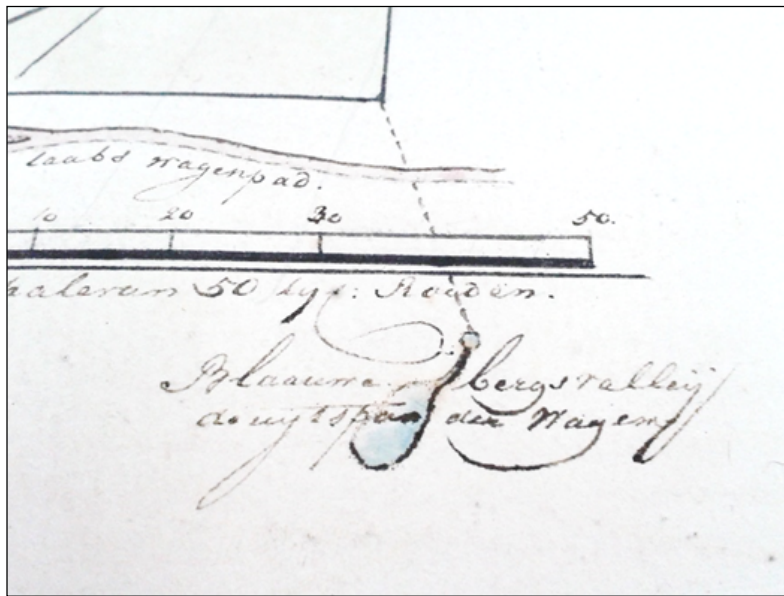 laabs wagenpad.
10 20 30 50.
50 Roeden.
Blaauwe bergsvalleij
de uytspan der Wagens